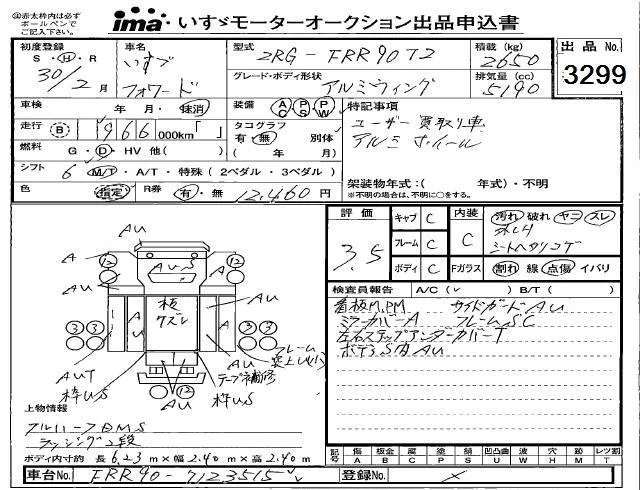 ◎赤太枠内は必ず
ボールペンで
ご記入下さい。
ima いすゞモーターオークション出品申込書
初度登録 S・H・R 30/2 月
車名 いすゞ フォワード
型式 2RG-FRR90T2
積載(kg) 2650
出品No. 3299
グレード・ボディ形状 アルミウィング
排気量(cc) 5190
車検 年・月・抹消
装備 AC PS PW
特記事項
ユーザー買取り車
アルミホイール
走行 B 966 000km「 」
タコグラフ 有・無 別体
( 年 月)
燃料 G・D・HV 他( )
シフト 6 M/T・A/T・特殊(2ペダル・3ペダル)
架装物年式:( 年式)・不明
※不明の場合は、不明に○をする。
色 指定
R券 有・無 12,460円
評価 3.5
キャブ C
フレーム C
ボディ C
内装 C
汚れ 破れ ヤニ スレ
シートヘタリコゲ
Fガラス 割れ 線 点傷 イバリ
検査員報告 A/C( ) B/T( )
看板M.PM サイドガードAU
ミラーカバーA フレームSC
左右ステップアンダーカバーT
ボデーS内AU
AU
A 12 AUS 12 A
AU AU
板クズレ
A A
3 3 3 3
AU AU
フレーム
AUT テープ補修
枠US 12 枠US
AU
上物情報
アルハーフDMS
ラッシング2段
ボディ内寸約 長 6.23m×幅 2.40m×高 2.40m
記号 傷 A 板金 B 腐 C 塗 P 錆 S 凹凸曲 U 波 W 穴 H 跡 M レツ割 T
車台No. FRR90-7123515
登録No. ×